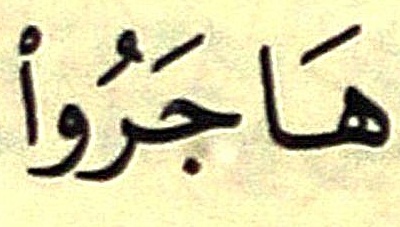 هَاجَرُوا۟